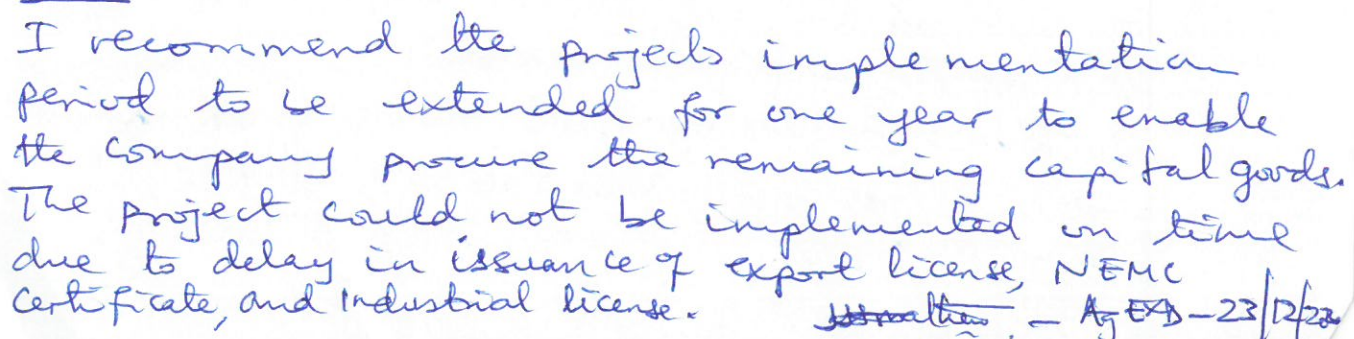 I recommend the projects implementation
period to be extended for one year to enable
the company procure the remaining capital goods.
The project could not be implemented on time
due to delay in issuance of export license, NEMC
certificate, and Industrial license. – Ag EXD – 23/12/